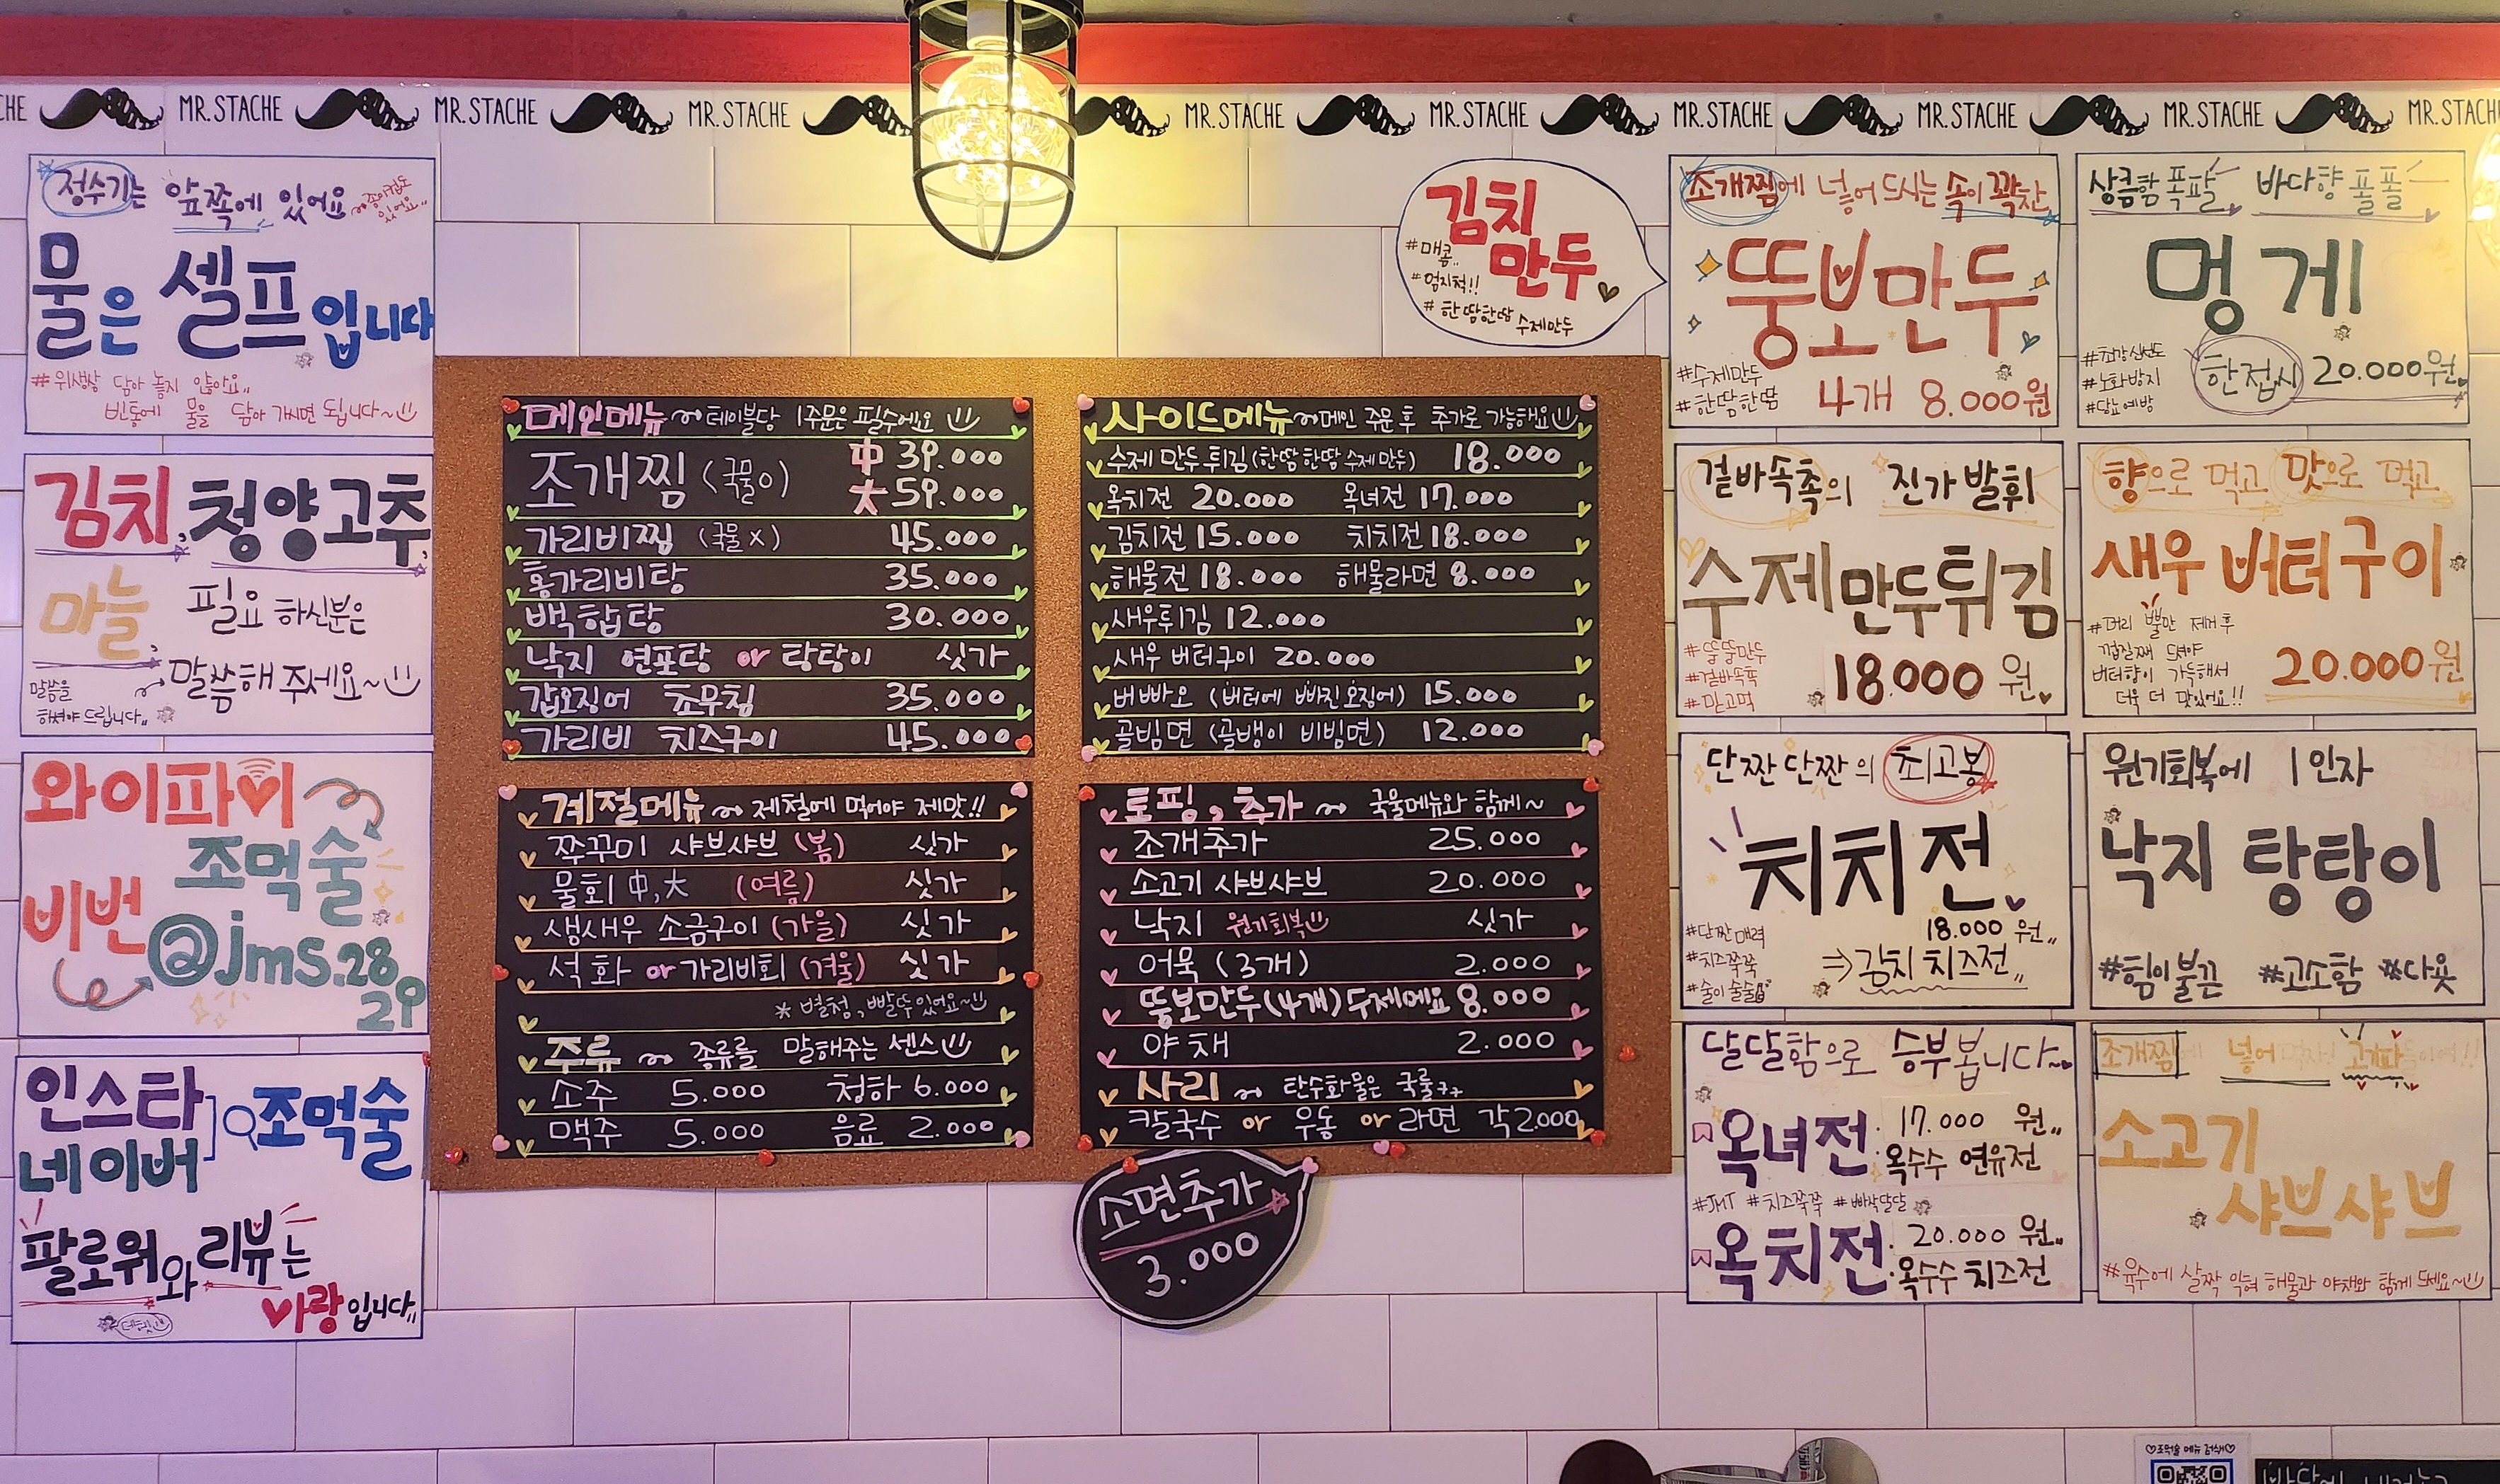 MR.STACHE MR.STACHE MR.STACHE MR.STACHE MR.STACHE MR.STACHE MR.STACHE MR.STACHE MR.STAC
정수기는 앞쪽에 있어요
종이컵도 있어요..
물은 셀프입니다
#위생상 담아 놓지 않아요..
빈통에 물을 담아 가시면 됩니다~
김치, 청양고추,
마늘, 필요 하신분은
말씀해 주세요~
말씀을
하셔야 드립니다..
와이파이
조먹술
비번
@jms.28
29
인스타
네이버
조먹술
팔로워와 리뷰는
사랑입니다..
메인메뉴 ~ 테이블당 1주문은 필수에요
조개찜 (국물o) 中 39.000
大 59.000
가리비찜 (국물x) 45.000
홍가리비탕 35.000
백합탕 30.000
낙지 연포탕 or 탕탕이 싯가
갑오징어 초무침 35.000
가리비 치즈구이 45.000
계절메뉴 ~ 제철에 먹어야 제맛!!
쭈꾸미 샤브샤브 (봄) 싯가
물회 中,大 (여름) 싯가
생새우 소금구이 (가을) 싯가
석화 or 가리비회 (겨울) 싯가
* 별청,빨뚜있어요~
주류 ~ 종류를 말해주는 센스
소주 5.000 청하 6.000
맥주 5.000 음료 2.000
사이드메뉴 ~메인 주문 후 추가로 가능해요
수제 만두 튀김 (한땀한땀 수제만두) 18.000
옥치전 20.000 옥녀전 17.000
김치전 15.000 치치전 18.000
해물전 18.000 해물라면 8.000
새우튀김 12.000
새우 버터구이 20.000
버빠오 (버터에 빠진 오징어) 15.000
골빔면 (골뱅이 비빔면) 12.000
토핑, 추가 ~ 국물메뉴와 함께~
조개추가 25.000
소고기 샤브샤브 20.000
낙지 원기회복 싯가
어묵 (3개) 2.000
뚱보만두(4개)수제에요 8.000
야채 2.000
사리 ~ 탄수화물은 국룰ㅋㅋ
칼국수 or 우동 or 라면 각2.000
소면추가
3.000
김치
만두
#매콤..
#엄지척!!
#한땀한땀 수제만두
조개찜에 넣어드시는 속이 꽉찬
뚱보만두
#수제만두
#한땀한땀
4개 8.000원
상큼함 폭팔 바다향 폴폴
멍게
#최강신선도
#노화방지
#당뇨예방
한접시 20.000원
겉바속촉의 진가 발휘
수제만두튀김
#뚱뚱만두
#겉바속촉
#믿고먹
18.000원
향으로 먹고 맛으로 먹고
새우 버터구이
#머리 뿔만 제거후
껍질째 드셔야
버터향이 가득해서
더욱 더 맛있어요!!
20.000원
단짠단짠의 최고봉
치치전
18.000 원..
⇒김치 치즈전..
#단짠매력
#치즈쭉쭉
#술이술술
원기회복에 1인자
낙지 탕탕이
#힘이불끈 #고소함 #다욧
달달함으로 승부봅니다~
옥녀전 17.000 원..
옥수수 연유전
#JMT #치즈쭉쭉 #빠삭달달
옥치전 20.000 원..
옥수수 치즈전
조개찜에 넣어
소고기
샤브샤브
#육수에 살짝 익혀 해물과 야채와 함께 드세요~
♡조먹술 메뉴 검색♡